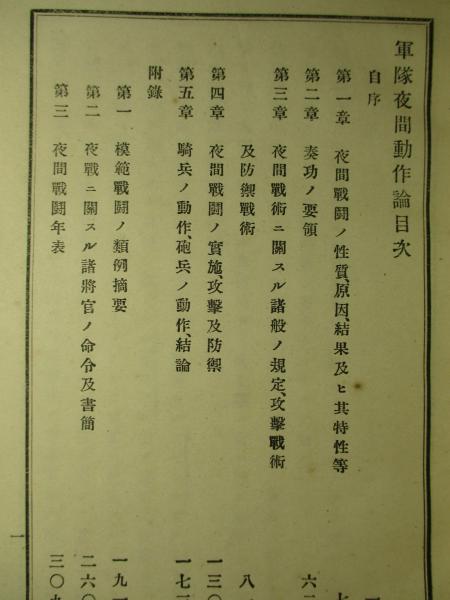 軍隊夜間動作論目次
自序 一
第一章 夜間戰鬪ノ性質、原因、結果及ヒ其特性等 七
第二章 奏功ノ要領 六二
第三章 夜間戰術ニ關スル諸般ノ規定、攻擊戰術
及防禦戰術 八
第四章 夜間戰鬪ノ實施、攻擊及防禦 一三〇
第五章 騎兵ノ動作、砲兵ノ動作、結論 一七
附錄
第一 模範戰鬪ノ類例摘要 一九
第二 夜戰ニ關スル諸將官ノ命令及書簡 二六〇
第三 夜間戰鬪年表 三〇九
一